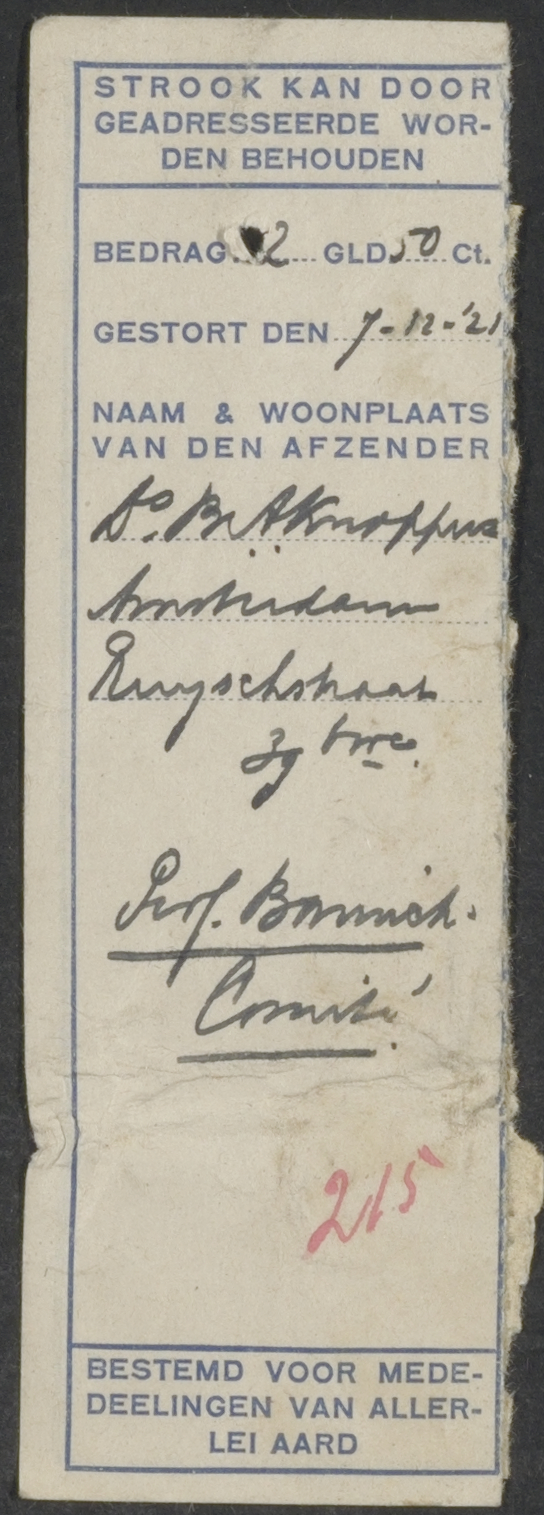 STROOK KAN DOOR
GEADRESSEERDE WOR-
DEN BEHOUDEN
BEDRAG 2 GLD 50 Ct.
GESTORT DEN 7-12-'21
NAAM & WOONPLAATS
VAN DEN AFZENDER
Ds. B. A Knoppers
Amsterdam
Ruyschstraat
Prof. Bavinck-
Comité
215
BESTEMD VOOR MEDE-
DEELINGEN VAN ALLER-
LEI AARD